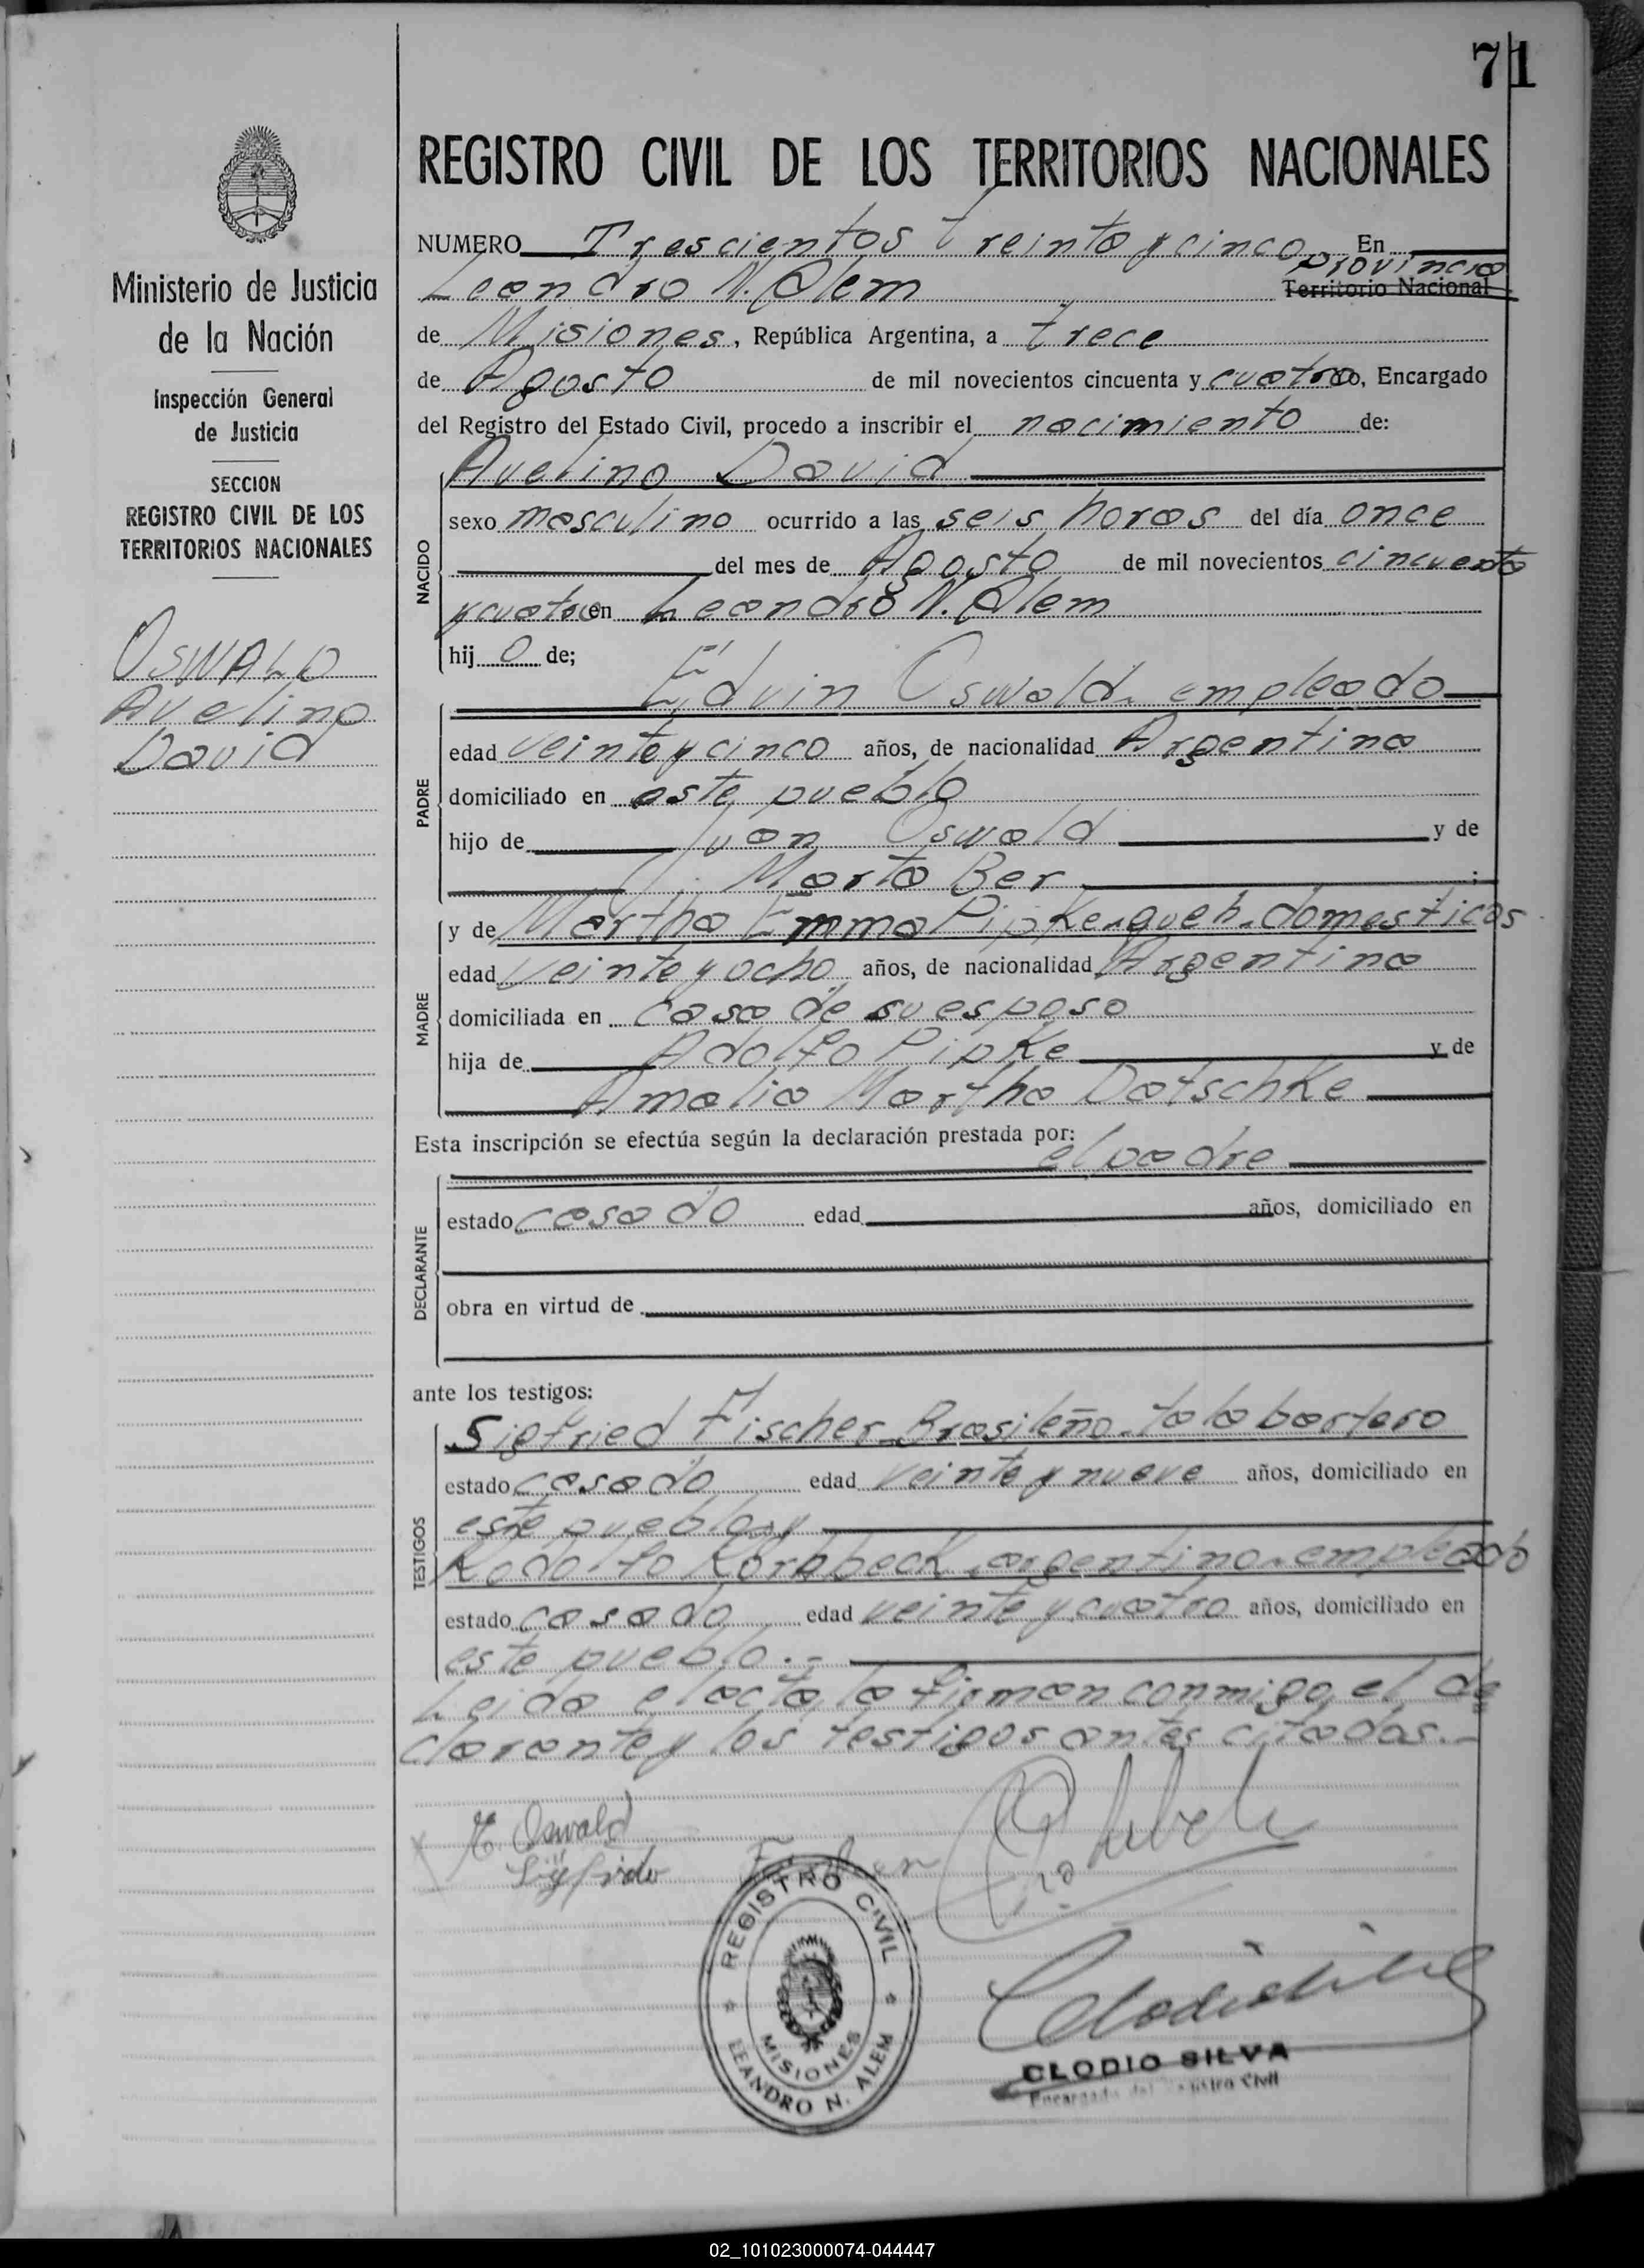 71
REGISTRO CIVIL DE LOS TERRITORIOS NACIONALES
Ministerio de Justicia
de la Nación
Inspección General
de Justicia
SECCION
REGISTRO CIVIL DE LOS
TERRITORIOS NACIONALES
OSWALD
Avelino
David
NUMERO Trescientos treinta y cinco En
Leandro N. Alem provincia Territorio Nacional
de Misiones, República Argentina, a trece
de Agosto de mil novecientos cincuenta y cuatro, Encargado
del Registro del Estado Civil, procedo a inscribir el nacimiento de:
NACIDO
Avelino David
sexo masculino ocurrido a las seis horas del día once
del mes de Agosto de mil novecientos cincuenta
y cuatro en Leandro N. Alem
hij o de;
PADRE
Edvin Oswald. empleado
edad veinte y cinco años, de nacionalidad Argentina
domiciliado en este pueblo
hijo de Juan Oswald y de
Marta Ber ;
MADRE
y de Martha Emma Pipke. queh. domesticos
edad veinte y ocho años, de nacionalidad Argentina
domiciliada en casa de su esposo
hija de Adolfo Pipke y de
Amalia Martha Datschke
Esta inscripción se efectúa según la declaración prestada por:
el padre
DECLARANTE
estado casado edad años, domiciliado en
obra en virtud de
ante los testigos:
TESTIGOS
Sigfried Fischer. Brasileño. talabartero
estado casado edad veinte y nueve años, domiciliado en
este pueblo. y
Rodolfo argentino. empleado
estado casado edad veinte y cuatro años, domiciliado en
este pueblo.-
Leida el acta la firman conmigo, el de
clarante y los testigos antes citados.-
E. Oswald
REGISTRO CIVIL
MISIONES
LEANDRO N. ALEM
CLODIO SILVA
Encargado del Registro Civil
02_101023000074-044447